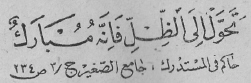 تَحَوَّلْ إِلَى الظِّلِّ فَإِنَّهُ مُبَارَكٌ
حاكم فى المستدرك، جامع الصغير ج/٢ ص ٢٣٤